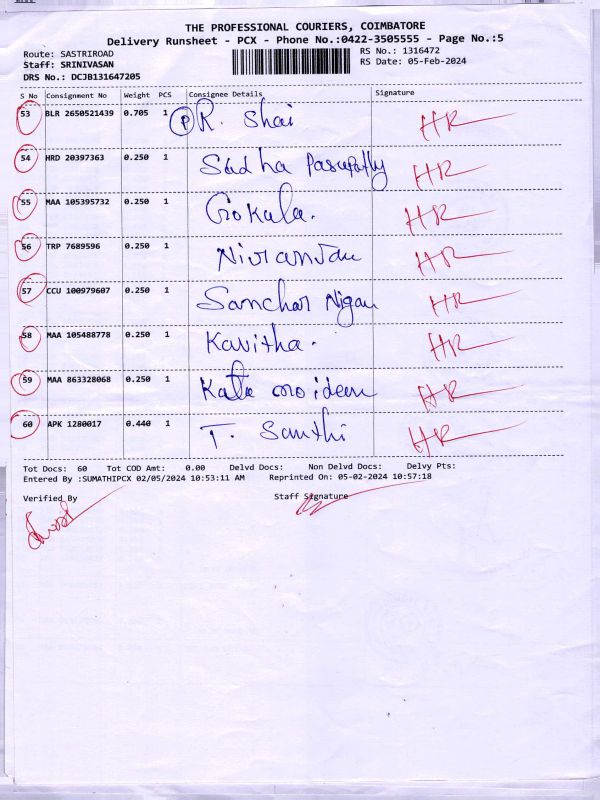 THE PROFESSIONAL COURIERS, COIMBATORE
Delivery Runsheet - PCX - Phone No.:0422-3505555 - Page No.:5
Route: SASTRIROAD RS No.: 1316472
Staff: SRINIVASAN RS Date: 05-Feb-2024
DRS No.: DCJB131647205
S No Consignment No Weight PCS Consignee Details Signature
53 BLR 2650521439 0.705 1 P R. Shai HR
54 HRD 20397363 0.250 1 Sudha HR
55 MAA 105395732 0.250 1 Gokula. HR
56 TRP 7689596 0.250 1 Niranjan HR
57 CCU 100979607 0.250 1 Sanchar Nigam HR
58 MAA 105488778 0.250 1 Kavitha. HR
59 MAA 863328068 0.250 1 HR
60 APK 1280017 0.440 1 T. Santhi HR
Tot Docs: 60 Tot COD Amt: 0.00 Delvd Docs: Non Delvd Docs: Delvy Pts:
Entered By :SUMATHIPCX 02/05/2024 10:53:11 AM Reprinted On: 05-02-2024 10:57:18
Verified By Staff Signature